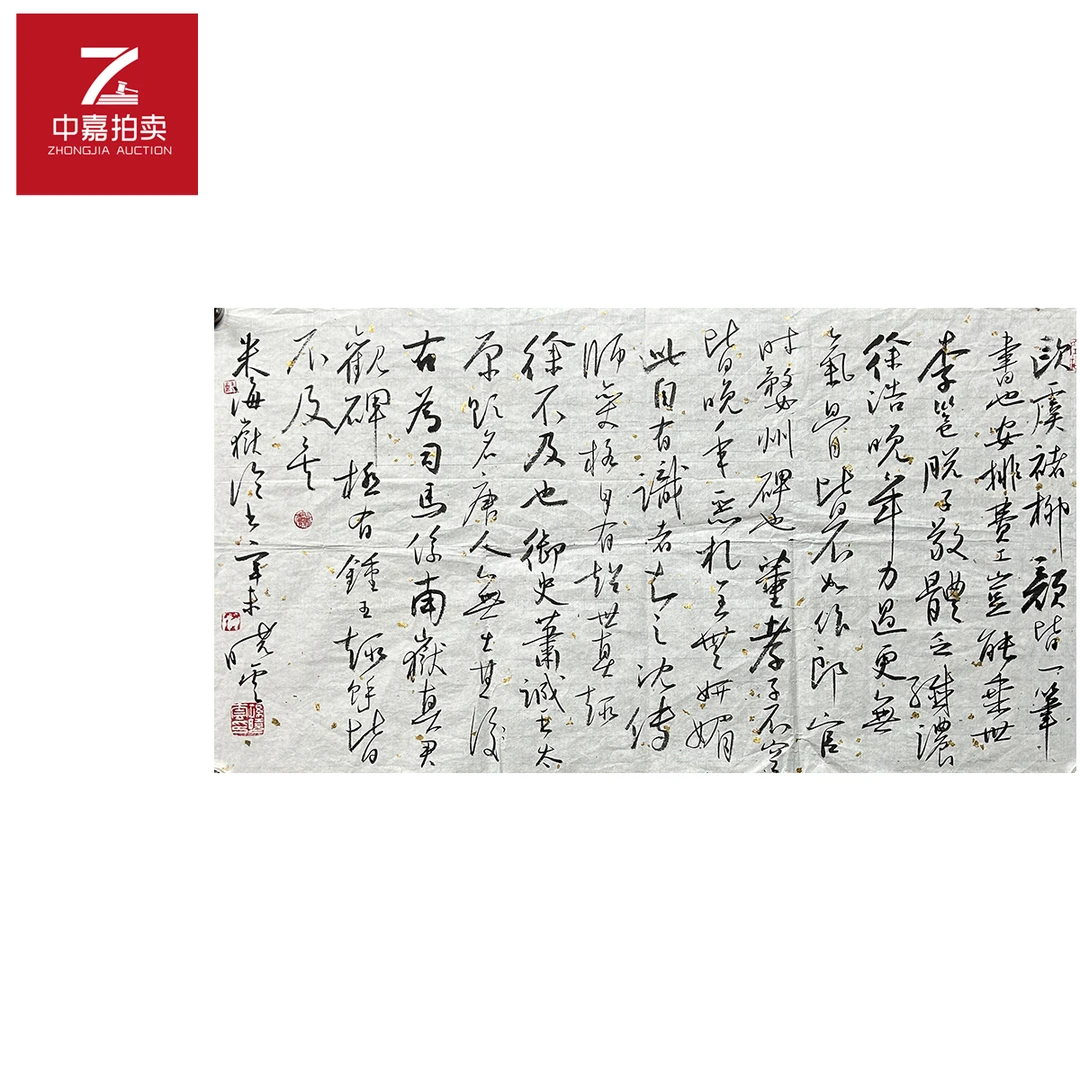 中嘉拍卖
ZHONGJIA AUCTION
欧虞褚柳顔皆一筆
書也安排費工豈能垂世
李邕脱子敬體乏纖濃
徐浩晚年力過更無
氣骨皆不如作郎官
时婺州碑也董孝子不空
皆晚年惡札全無妍媚
此自有識者知之沈传
師變格自有超世真趣
徐不及也御史蕭诚書太
原题名唐人無出其後
古為司馬係南嶽真君
觀碑極有鍾王趣餘皆
不及矣
米海嶽論書辛未
晓雲